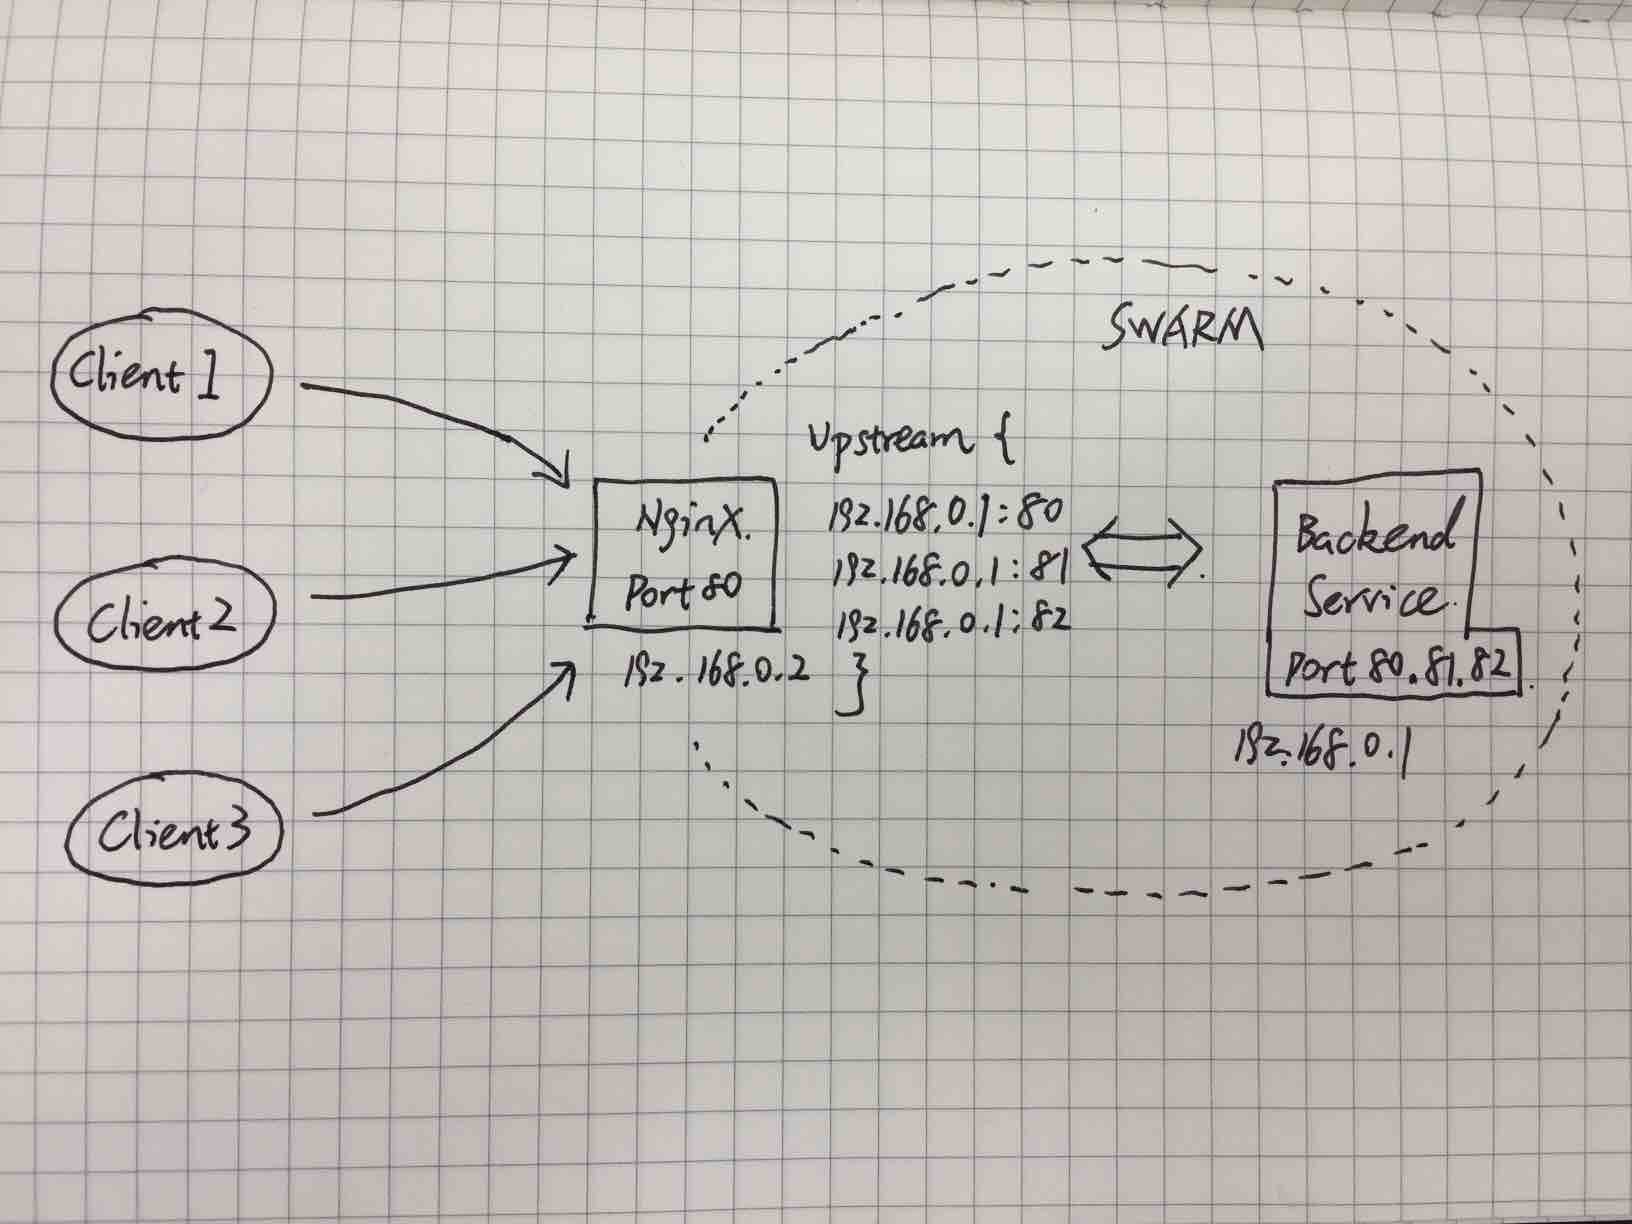 SWARM
Client 1
Client 2
Client 3
NginX.
Port 80
192.168.0.2
Upstream {
192.168.0.1:80
192.168.0.1:81
192.168.0.1:82
}
Backend
Service.
Port 80.81.82
192.168.0.1